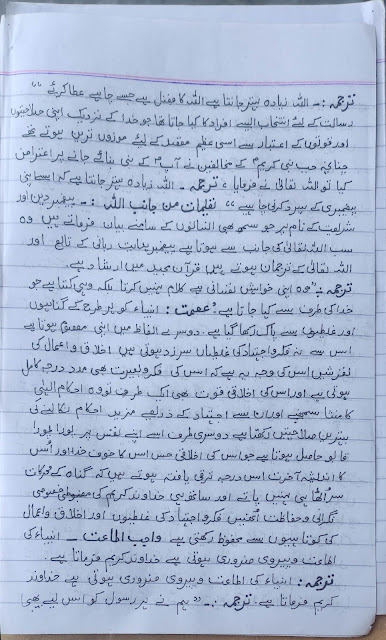 ترجمہ :۔ اللہ زیادہ بہتر جانتا ہے اللہ کا فضل ہے جسے چاہے عطا کرئے ،،
رسالت کے لئے انتخاب ایسے افراد کا کیا جاتا تھا جو خدا کے نزدیک اپنی صلاحیتوں
اور قوتوں کے اعتبار سے اسی عظیم مقصد کے لیئے موزوں ترین ہوتے تھے
چنانچہ جب نبی کریم ؐ کے مخالفین نے آپ ؐ کے نبی بنائے جانے پر اعتراض
کیا تو اللہ تعالیٰ نے فرمایا ، ترجمہ ۔ اللہ زیادہ بہتر جانتا ہے کہ اسے اپنی
پیغمبری کے سپرد کرنی چاہیے ،، تعلیمات من جانب اللہ :۔ پیغمبر دین اور
شریعت کے نام پر جو سمجھ بھی انسانوں کے سامنے بیان فرماتے ہیں وہ
سب اللہ تعالیٰ کی جانب سے ہوتا ہے پیغمبر ہدایت ربانی کے تابع اور
اللہ تعالیٰ کے ترجمان ہوتے ہیں قرآن مجید میں ارشاد ہے۔
ترجمہ :۔ "وہ اپنی خواہش نفسانی سے کلام نہیں کرتا بلکہ وہی کہتا ہے جو
خدا کی طرف سے کیا جاتا ہے، عصمت : انبیاء کو ہر طرح کے گناہوں
اور غلطیوں سے پاک رکھا گیا ہے۔ دوسرے الفاظ میں اپنی معصوم ہوتا ہے
اس سے نہ فکر و اجتہاد کی غلطیاں سرزد ہوتی ہیں اخلاق و اعمال کی
لغزشیں اس کی وجہ یہ ہے کہ اس کی فکر و بصیرت بھی مدد درجہ کامل
ہوتی ہے اور اس کی اخلاقی قوت بھی ایک طرف تو وہ احکام الہٰی
کا منشا سمجھنے اور ان سے اجتہاد کے ذریعے مزید احکام نکالنے کی
بہترین صلاحیتیں رکھتا ہے دوسری طرف اسے اپنے نفس پر پورا پورا
قابو حاصل ہوتا ہے جو اس کی اخلاقی حس اس کا خوف خدا اور اُس
کا اندیشہ آخرت اس درجہ ترقی یافتہ ہوتے ہیں کہ گناہ کے محرکات
سر اٹھا ہی نہیں پاتے اور ساتھ ہی خداوند کریم کی خصوصی
نگرانی و حفاظت اُنھیں فکر و اجتہاد کی غلطیوں اور اخلاق و اعمال
کی کوتاہیوں سے محفوظ رکھتی ہے۔ واجب اطاعت ۔ انبیاء کی
اطاعت و پیروی ضروری ہوتی ہے خداوند کریم فرماتا ہے۔
ترجمہ : انبیاء کی اطاعت و پیروی ضروری ہوتی ہے خداوند
کریم فرماتا ہے۔ ترجمہ :۔ "ہم نے ہر رسول کو اس لیے بھی